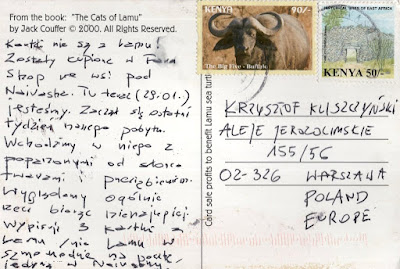 From the book: "The Cats of Lamu"
by Jack Couffer © 2000. All Rights Reserved.
Kartki nie są z Lamu
Zostały kupione w Farm
Shop we wsi pod
Naivasha. Tu teraz (29.01.)
jesteśmy. Zaczął się ostatni
tydzień naszego pobytu.
Wchodzimy w niego z
poparzonymi od słońca
twarzami i
Wyglądamy ogólnie
rzecz biorąc
Wypisuję 3 kartki z
Lamu /nie w Lamu
KENYA 90/-
The Big Five - Buffalo
HISTORICAL SITES OF EAST AFRICA
KENYA 50/-
Card sale profits to benefit Lamu sea turt
KRZYSZTOF KLISZCZYŃSKI
ALEJE JEROZOLIMSKIE
155/56
02-326 WARSZAWA
POLAND
EUROPE